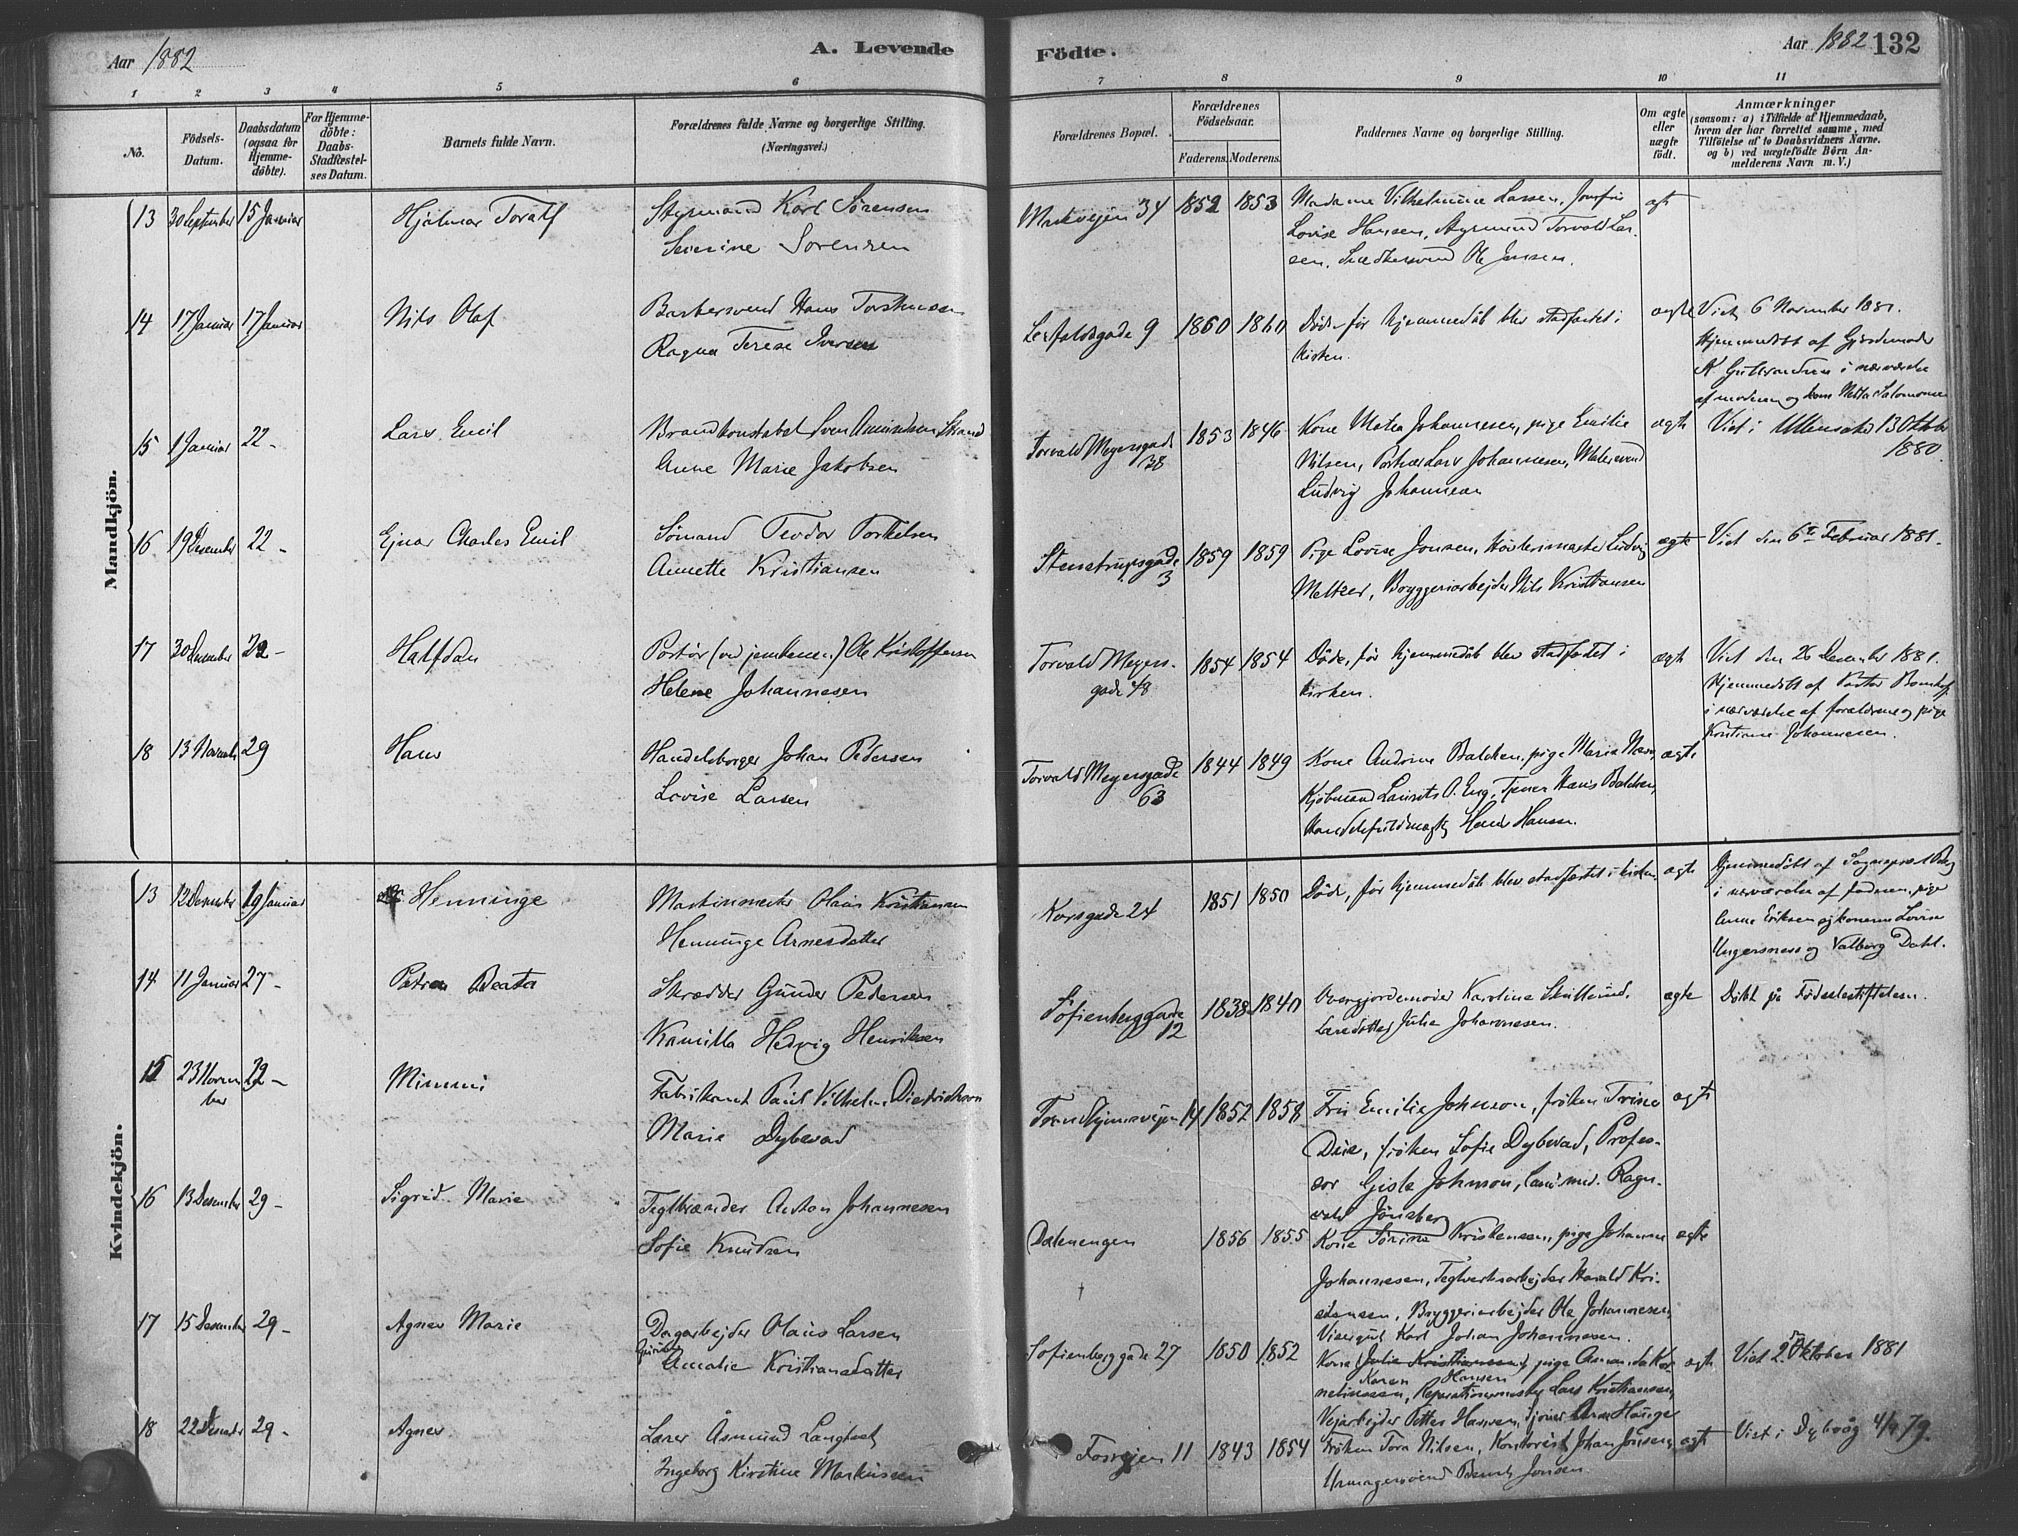 Aar 1882
A. Levende
Födte.
Aar 1882 132
1 2 3 4 5 6 7 8 9 10 11
No.
Födsels-
Datum.
Daabsdatum
(ogsaa for
Hjemme-
döbte).
For Hjemme-
döbte:
Daabs-
Stadfæstel-
ses Datum.
Barnets fulde Navn.
Forældrenes fulde Navne og borgerlige Stilling.
(Næringsvei.)
Forældrenes Bopæl.
Forældrenes
Födselsaar.
Faderens. Moderens.
Faddernes Navne og borgerlige Stilling.
Om ægte
eller
uægte
født.
Anmærkninger
(saasom: a) i Tilfælde af Hjemmedaab,
hvem der har forrettet samme, med
Tilföielse af to Daabsvidners Navne.
og b) ved uægtefödte Börn An-
melderens Navn m. V.)
Mandkjön.
13 30 September 15 Januar
Hjalmar Toralf
Styrmand Karl Sørensen
Severine Sørensen
Markvejen 34
1852 1853
Madame Vilhelmine Larsen, Josefine
Lovise Hansen, Styrmand Torvald Lar-
sen, Snedkersvend Ole Jensen.
14 17 Januar 17 Januar
Nils Olaf
Barbersvend Hans
Ragna Terese Iversen
9
1860 1860
Døde, før hjemmedåb blev stadfæstet i
kirken.
ægte
Viet 6 November 1881.
Hjemmedøbt af Gjordemoder
K. Gulbrandsen i nærværelse
af moderen og kone Salomonsen
15 1 Januar 22 -
Lars Emil
Brandkonstabel Sven Amundsen Strand
Anne Marie Jakobsen
Torvald Meyersgade
38
1853 1846
Kone Matea Johannesen, pige Emilie
Nilsen, Portør Lars Johannesen, Malersvend
Ludvig Johannesen
ægte
Viet i Ullensaker 13 Oktober
1880.
16 19 Desember 22 -
Ejnar Charles Emil
Sømand Teodor Torkelsen
Annette Kristiansen
Stenstrupsgade
3
1859 1859
Pige Lovise Jonsen, Ludvig
Meltzer, Bryggeriarbejder Nils Kristiansen
ægte
Viet den 6te Februar 1881.
17 30 Desember 22 -
Halfdan
Portør (ved jernbanen) Ole Kristoffersen
Helene Johannesen
Torvald Meyers-
gade 48
1854 1854
Døde, før hjemmedåb blev stadfæstet i
kirken.
ægte
Viet den 26 Desember 1881.
Hjemmedøbt af Pastor
i nærværelse af forældrene og pige
Kristiane Johannesen.
18 13 Novemb 29
Hans
Handelsborger Johan Pedersen
Lovise Larsen
Torvald Meyersgade
63
1844 1849
Kone Andrine Balchen, pige Maria
Kjøbmand Laurits O. Eng, Hans Balchen,
Hansen.
ægte
Kvindekjön.
13 12 Desember 19 Januar
Henninge
Maskinmester Olaus Kristiansen
Henninge Arnesdatter
Korsgade 24
1851 1850
Døde, før hjemmedåb blev stadfæstet i kirken.
ægte
Hjemmedøbt af Sogneprest
i nærværelse af faderen, pige
Anne Eriksen og konerne Lovise
Ungersness og Valborg Dahl.
14 11 Januar 27 -
Petra Beata
Skrædder Gunder Pedersen
Kamilla Hedvig Henriksen
Sofienberggade
12
1838 1840
Overjordemoder Karoline
Larsdatter, Julie Johannesen.
ægte
Døbt på Fødselsstiftelsen.
15 23 Novem-
ber 22 -
Mimmi
Fabrikant Paul Vilhelm Diedrichson
Marie Dybwad
Trondhjemsvejen 14
1852 1858
Fru Emilie Johnson, frøken Trine
Due, frøken Sofie Dybwad, Profes-
sor Gisle Johnson, Cand. med. Ragn-
vald Jønsberg
ægte
16 13 Desember 29 -
Sigrid Marie
Teglbrænder Anton Johannesen
Sofie Knudsen
Dælenengen
1856 1855
Kone Sørine Kristensen, pige Johanne
Johannesen, Teglverksarbejder Harald Kri-
stensen, Bryggeriarbejder Ole Johannesen,
Visergut Karl Johan Johannesen.
ægte
17 15 Desember 29 -
Agnes Marie
Dagarbejder Olaus Larsen
Amalie Kristiansdatter
Sofienberggade 27
1850 1852
Kone Julie Kristiansen, pige Amanda Kor-
Karen Hansen
neliussen, Reparationsmester Lars Kristiansen,
Vejarbejder Petter Hansen,
ægte
Viet 2 Oktober 1881
18 22 Desember 29 -
Agnes
Lærer Åsmund Langfeldt
Ingeborg Kirstine Markussen
Fossvejen 11
1843 1854
Frøken Tora Nilsen, Kontorist Johan Jonsen,
Urmagersvend Jonsen.
ægte
Viet i Dybvåg 4/9 79.